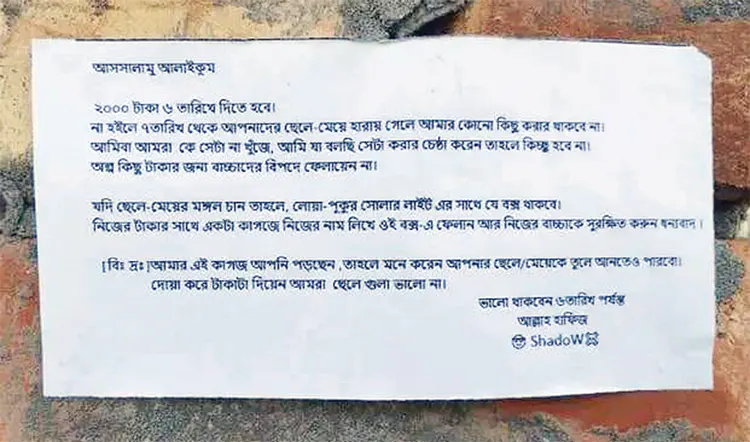 আসসালামু আলাইকুম
২০০০ টাকা ৬ তারিখে দিতে হবে।
না হইলে ৭তারিখ থেকে আপনাদের ছেলে-মেয়ে হারায় গেলে আমার কোনো কিছু করার থাকবে না।
আমিবা আমরা কে সেটা না খুঁজে, আমি যা বলছি সেটা করার চেষ্ঠা করেন তাহলে কিচ্ছু হবে না।
অল্প কিছু টাকার জন্য বাচ্চাদের বিপদে ফেলায়েন না।
যদি ছেলে-মেয়ের মঙ্গল চান তাহলে, লোয়া-পুকুর সোলার লাইট এর সাথে যে বক্স থাকবে।
নিজের টাকার সাথে একটা কাগজে নিজের নাম লিখে ওই বক্স-এ ফেলান আর নিজের বাচ্চাকে সুরক্ষিত করুন ধন্যবাদ।
[বিঃ দ্রঃ]আমার এই কাগজ আপনি পড়ছেন, তাহলে মনে করেন আপনার ছেলে/মেয়েকে তুলে আনতেও পারবো।
দোয়া করে টাকাটা দিয়েন আমরা ছেলে গুলা ভালো না।
ভালো থাকবেন ৬তারিখ পর্যন্ত
আল্লাহ হাফিজ
ShadoW